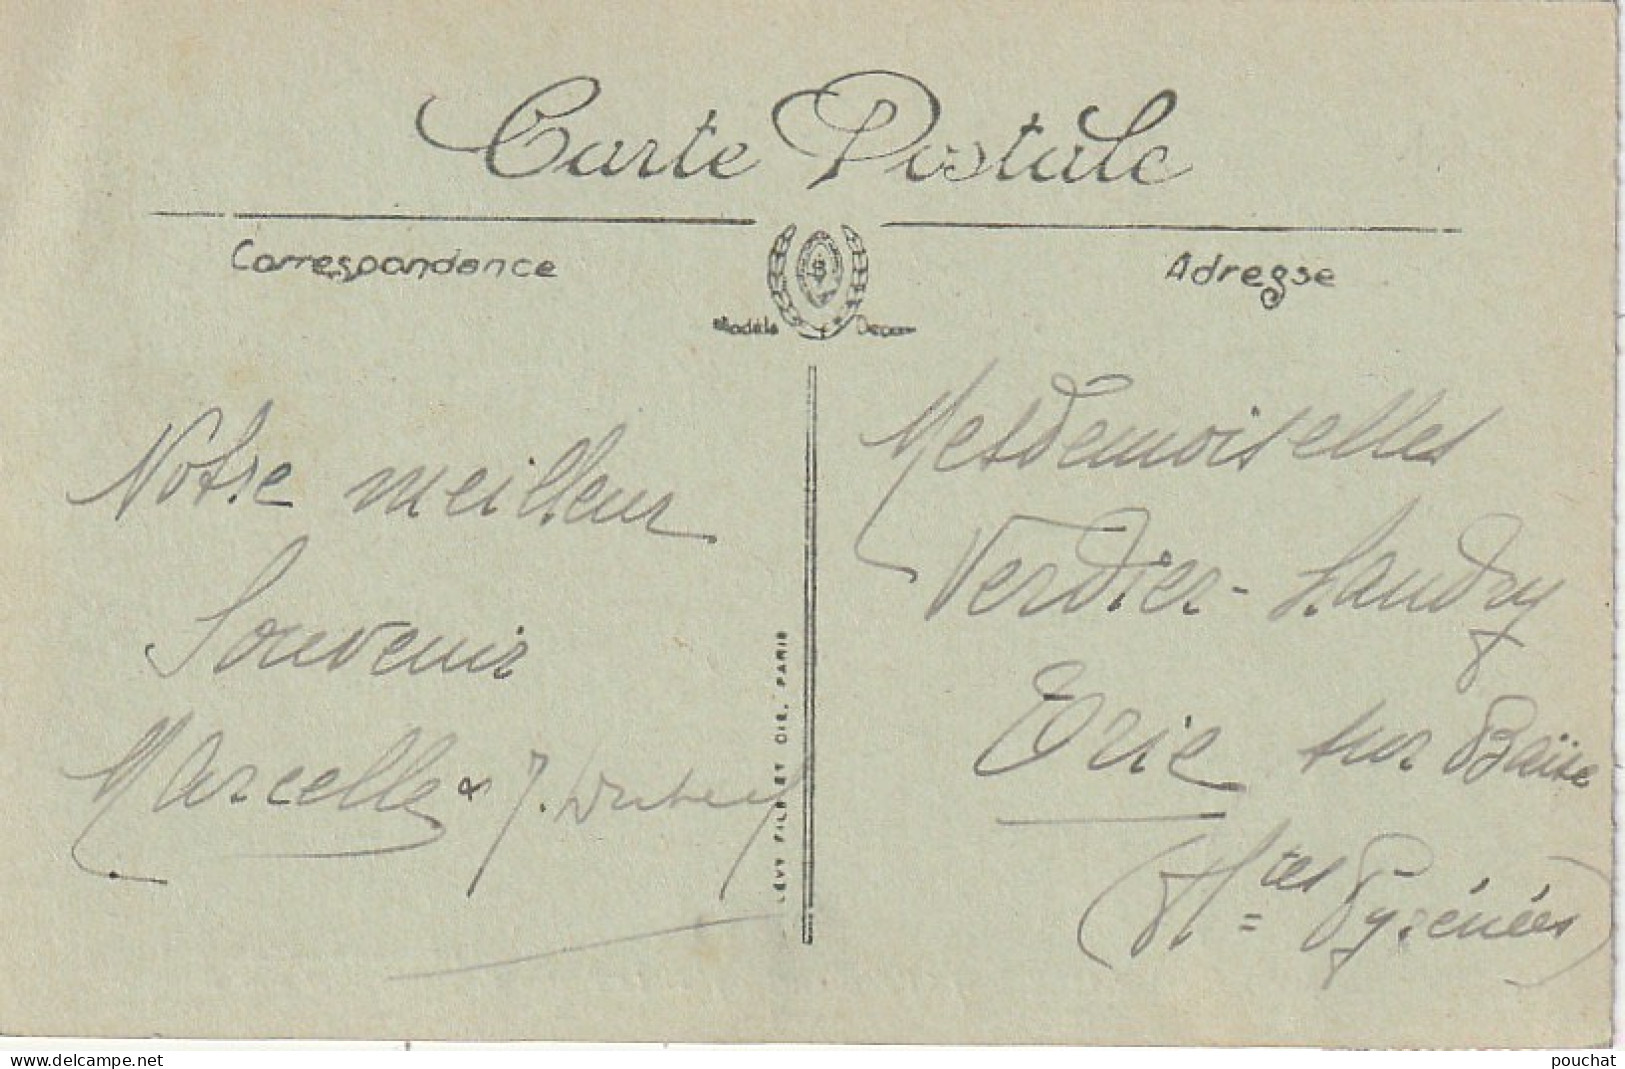 Carte Postale
Correspondance
Adresse
Modèle Déposé
Notre meilleur
Souvenir
Marcelle & J.
LÉVY FILS ET CIE, PARIS
Mesdemoiselles
Verdier-Landry
Trie sur Baïse
(Htes Pyrénées)
www.delcampe.net
pouchat